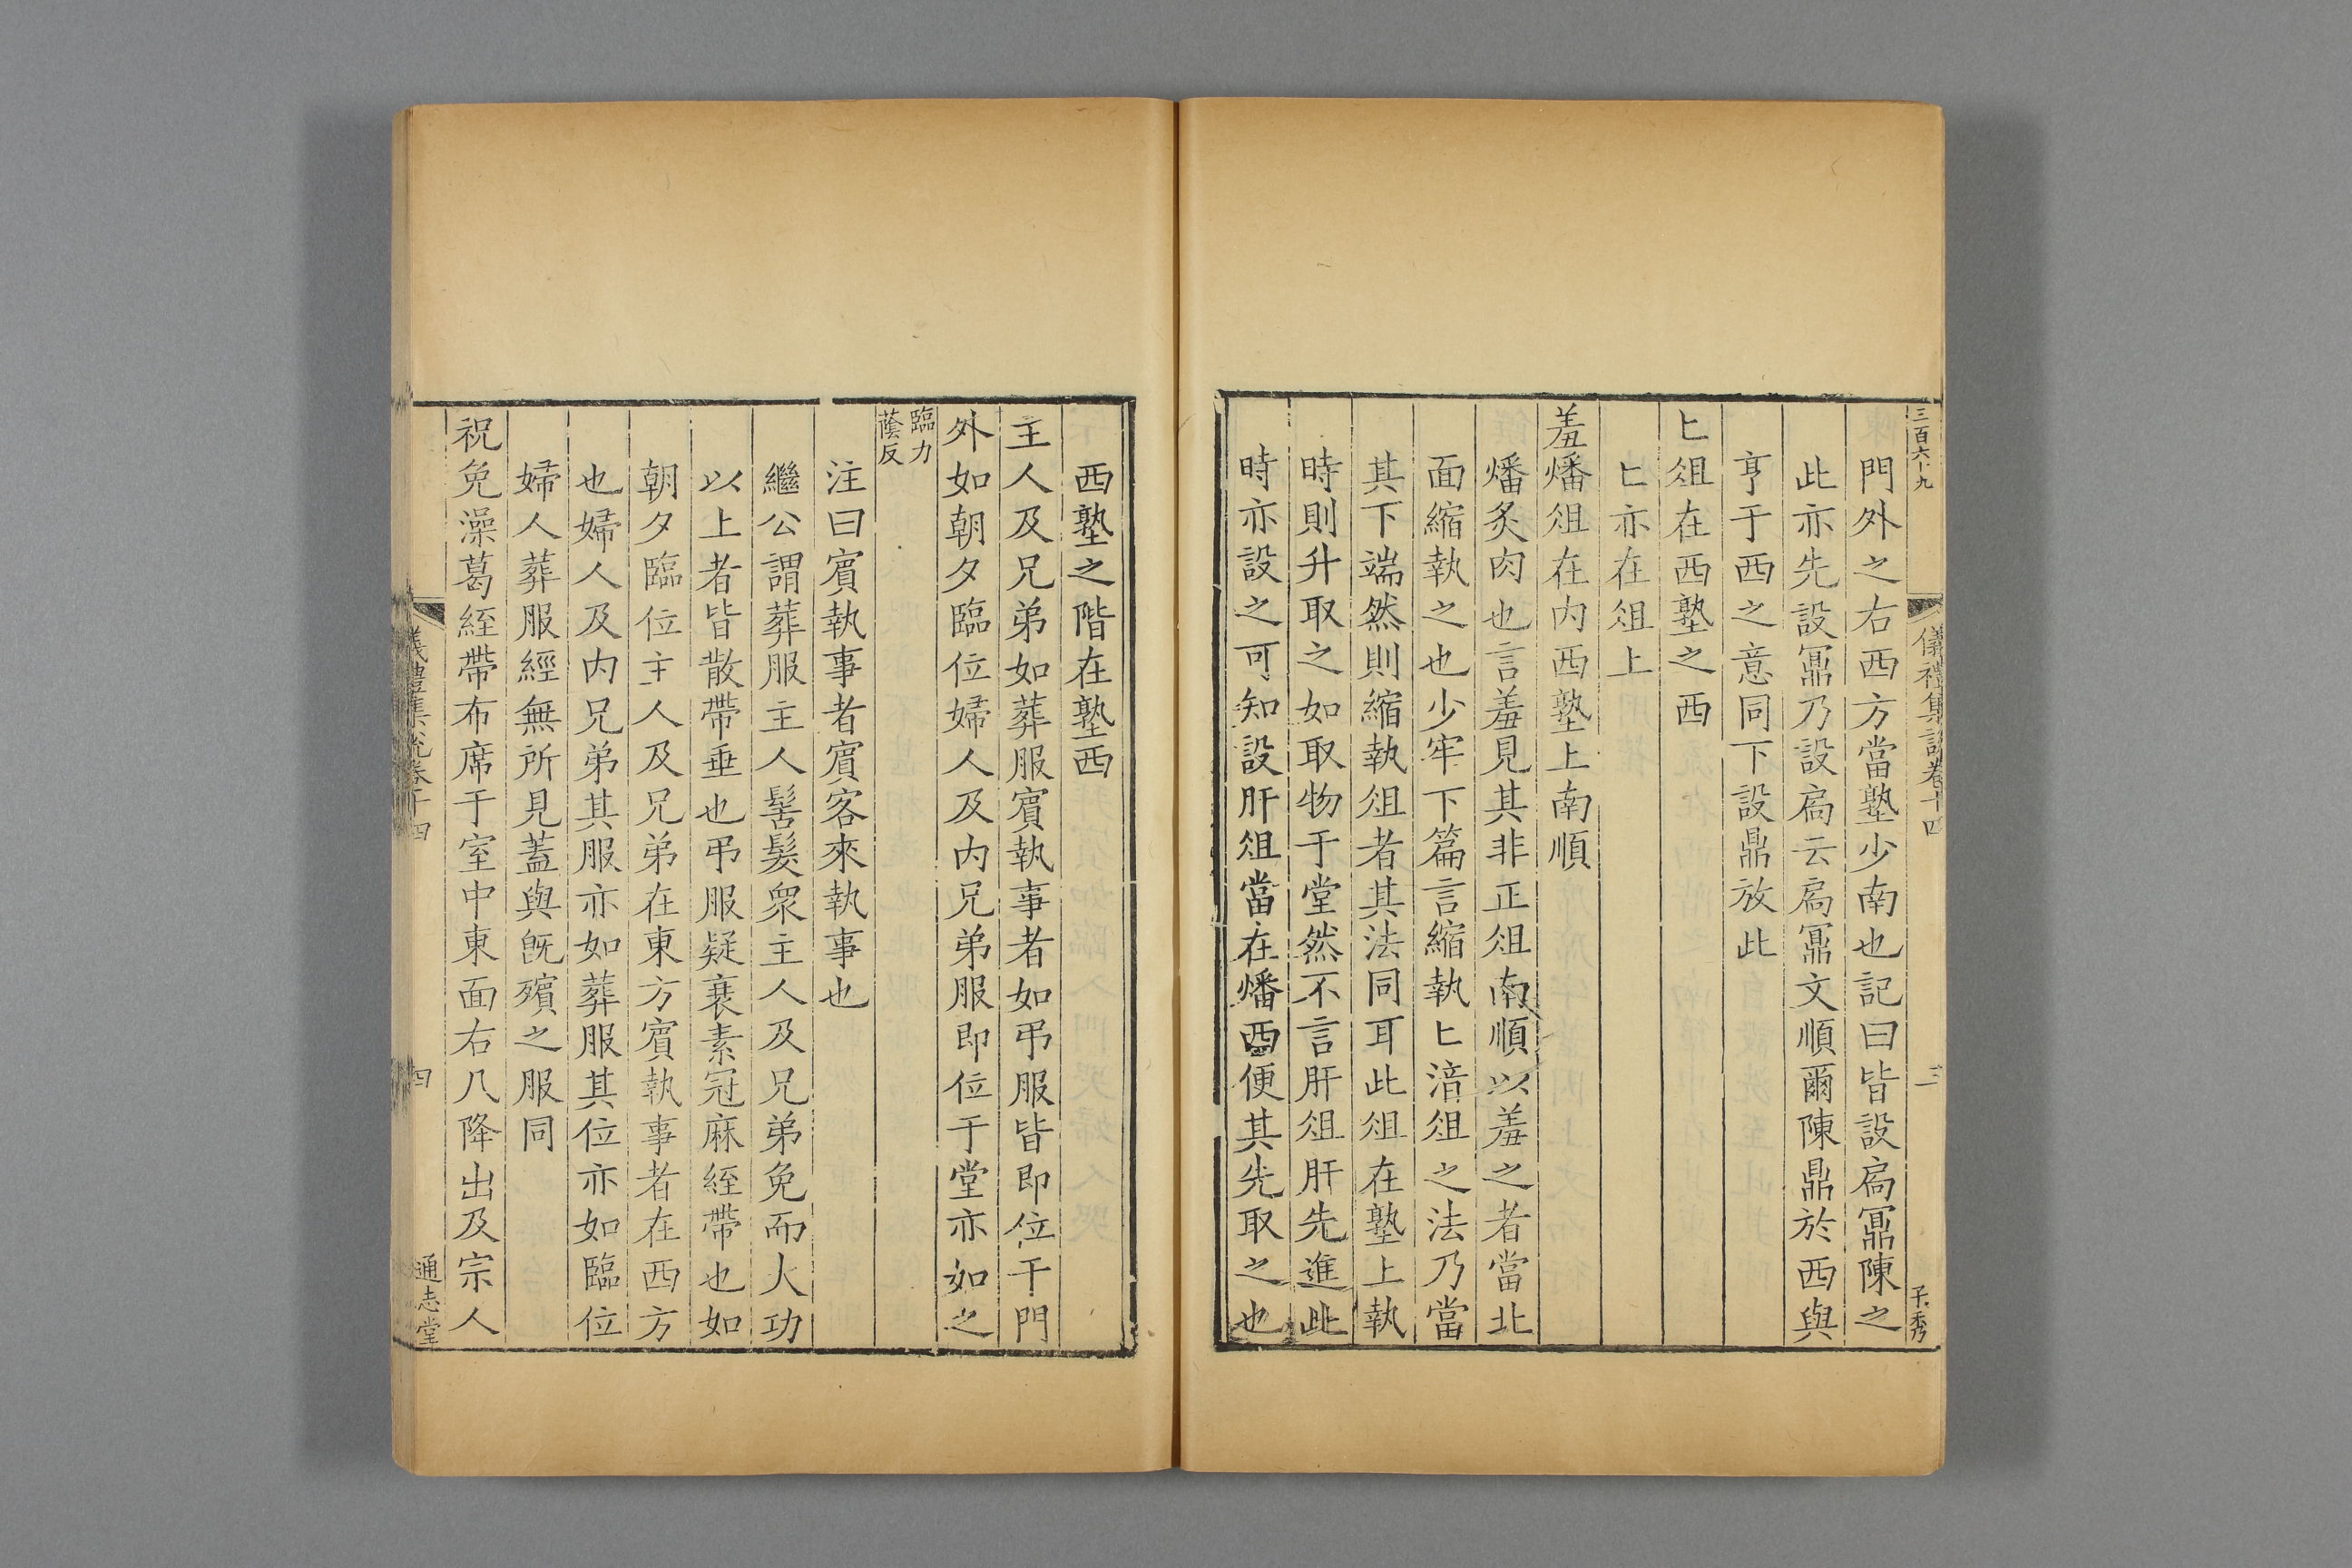 三百六十九
儀禮集說卷十四
三
子秀
門外之右西方當塾少南也記曰皆設扃鼏陳之
此亦先設鼏乃設扃云扃鼏文順爾陳鼎於西與
亨于西之意同下設鼎放此
匕俎在西塾之西
匕亦在俎上
羞燔俎在内西塾上南順
燔炙肉也言羞見其非正俎南順以羞之者當北
面縮執之也少牢下篇言縮執匕湆俎之法乃當
其下端然則縮執俎者其法同耳此俎在塾上執
時則升取之如取物于堂然不言肝俎肝先進此
時亦設之可知設肝俎當在燔西便其先取之也
西塾之階在塾西
主人及兄弟如葬服賓執事者如弔服皆即位于門
外如朝夕臨位婦人及内兄弟服即位于堂亦如之
臨力
蔭反
注曰賓執事者賓客來執事也
繼公謂葬服主人髺髮衆主人及兄弟免而大功
以上者皆散帶垂也弔服疑衰素冠麻絰帶也如
朝夕臨位主人及兄弟在東方賓執事者在西方
也婦人及内兄弟其服亦如葬服其位亦如臨位
婦人葬服經無所見蓋與旣殯之服同
祝免澡葛絰帶布席于室中東面右几降出及宗人
儀禮集說卷十四
四
通志堂